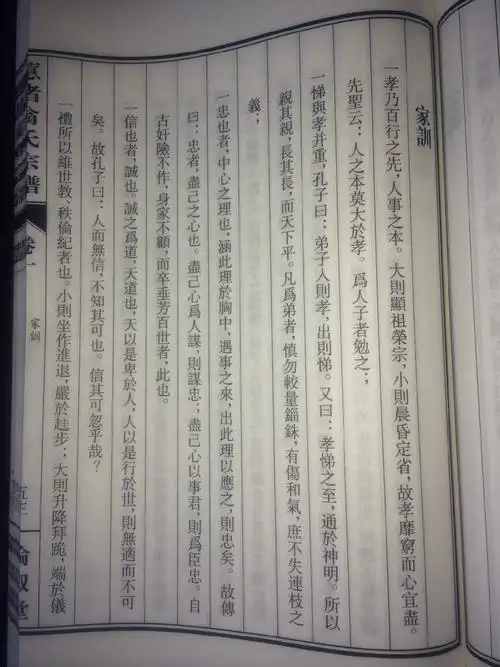 家訓
一孝乃百行之先，人事之本。大則顯祖榮宗，小則晨昏定省，故孝靡窮而心宜盡。
先聖云：人之本莫大於孝。爲人子者勉之；
一悌與孝并重，孔子曰：弟子入則孝，出則悌。又曰：孝悌之至，通於神明。所以
親其親，長其長，而天下平。凡爲弟者，慎勿較量錙銖，有傷和氣，庶不失連枝之
義；
一忠也者，中心之理也，涵此理於胸中，遇事之來，出此理以應之，則忠矣。故傳
曰：忠者，盡己之心也。盡己心爲人謀，則謀忠；盡己心以事君，則爲臣忠。自
古奸險不作，身家不顧，而卒垂芳百世者，此也。
一信也者，誠也。誠之爲道，天道也，天以是卑於人，人以是行於世，則無適而不可
矣。故孔子曰：人而無信，不知其可也。信其可忽乎哉？
一禮所以維世教、秩倫紀者也。小則坐作進退，嚴於趌步；大則升降拜跪，端於儀
氏宗譜
卷一
家訓
堂